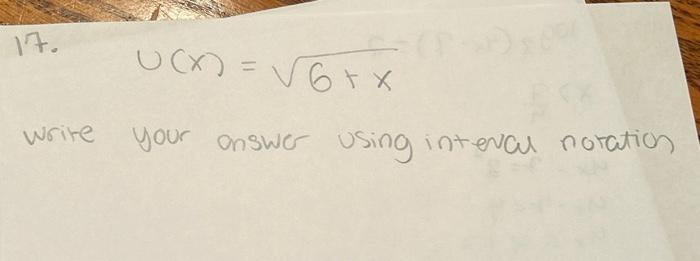 17.
U(x) = √6+x
write your answer using interval notation